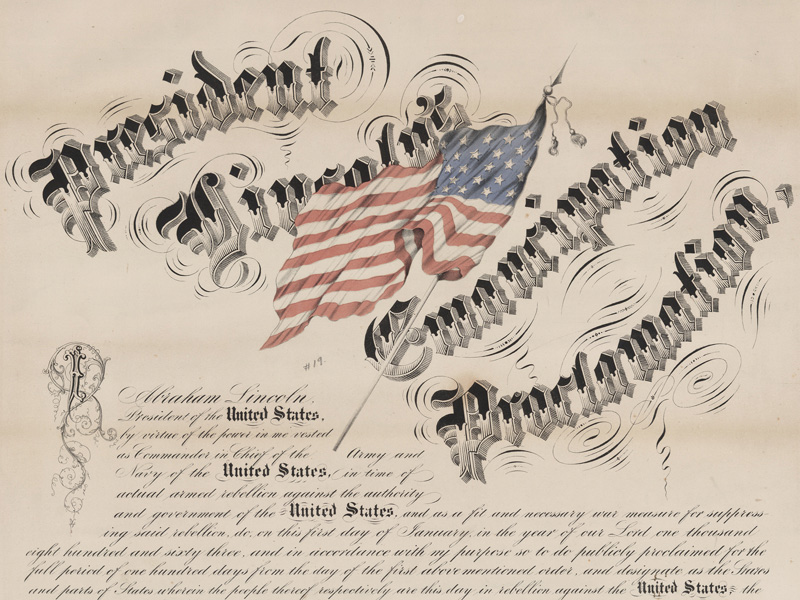 President
Lincoln's
Emancipation
Proclamation.
#19.
I
Abraham Lincoln,
President of the United States,
by virtue of the power in me vested
as Commander in Chief of the Army and
Navy of the United States, in time of
actual armed rebellion against the authority
and government of the United States, and as a fit and necessary war measure for suppress-
ing said rebellion, do, on this first day of January, in the year of our Lord one thousand
eight hundred and sixty three, and in accordance with my purpose so to do publicly proclaimed for the
full period of one hundred days from the day of the first abovementioned order, and designate as the States
and parts of States wherein the people thereof respectively are this day in rebellion against the United States; the